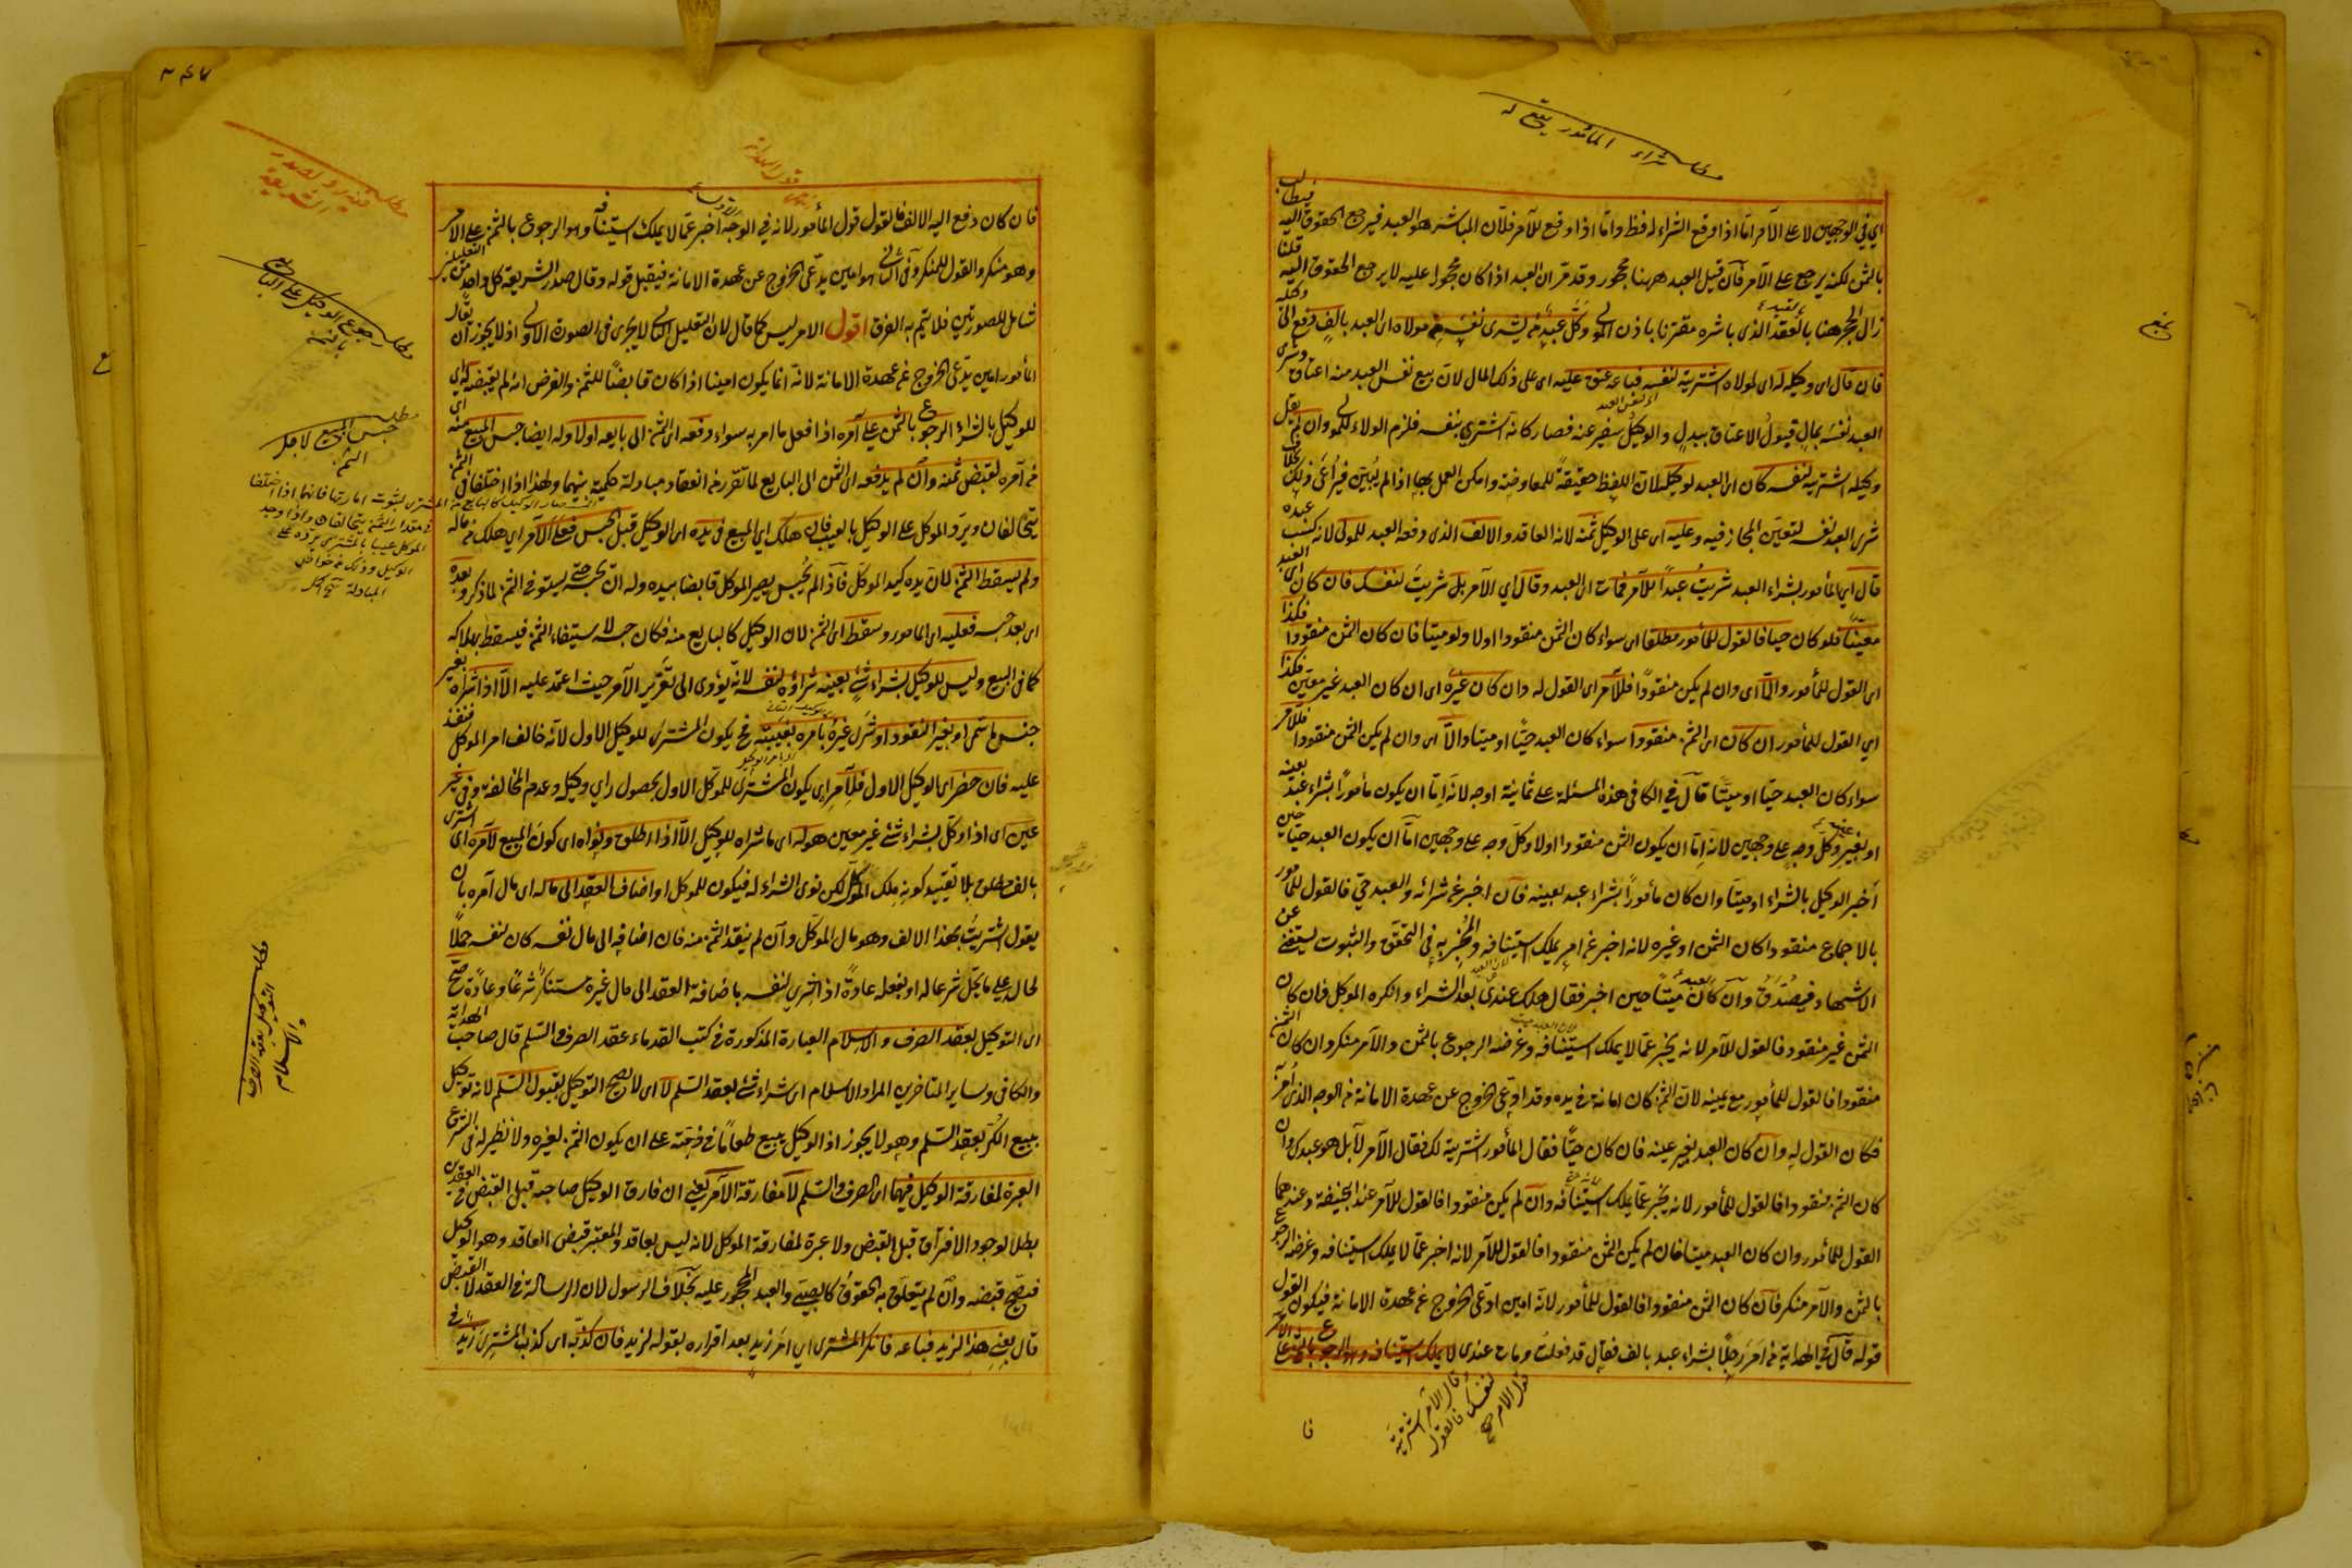 مطلب شراء المأمور يقع له
اي في الوجهين لا على الآمر اما اذا وقع الشراء له فظ واما اذا وقع للآمر فلان المباشر هو العبد فيرجع الحقوق اليه فيطالب
بالثمن لكنه يرجع على الآمر فان قيل العبد ههنا محجور وقد مر ان العبد اذا كان محجورا عليه لا يرجع الحقوق اليه قلنا
زال الحجر هنا بالعقد الذي باشره مقترنا باذن المولى وكل عبد من يشرى نفسه من مولاه اى العبد بالف دفع الى وكيله
فان قال اى وكيله له اى لمولاه اشتريته لنفسه فباعه عتق عليه اى على ذلك المال لان بيع نفس العبد منه اعتاق وشرى
العبد نفسه بمال قبول الاعتاق ببدل والوكيل سفير عنه فصار كانه اشترى بنفسه فلزم الولاء للمولى وان لم يقل
وكيله اشتريته لنفسه كان اى العبد لوكيله لان اللفظ حقيقة للمعاوضة وامكن العمل بها اذا لم يبين فيراعى ذلك بخلاف
شرى العبد نفسه لتعين المجاز فيه وعليه اى على الوكيل ثمنه لانه العاقد والالف الذى دفعه العبد للمولى لانه كسب عبده
قال اي المأمور بشراء العبد شريت عبدا للآمر فمات اى العبد وقال اي الآمر بل شريت لنفسك فان كان اى العبد
معينا فلو كان حيا فالقول للمأمور مطلقا اى سواء كان الثمن منقودا اولا ولو ميتا فان كان الثمن منقودا فكذا
اى القول للمأمور والا اى وان لم يكن منقودا فللآمر اى القول له وان كان غيره اى ان كان العبد غير معين فكذا
اي القول للمأمور ان كان اى الثمن منقودا سواء كان العبد حيا او ميتا والا اى وان لم يكن الثمن منقودا فللآمر
سواء كان العبد حيا او ميتا قال في الكافى هذه المسئلة على ثمانية اوجه لانه اما ان يكون مأمورا بشراء عبد بعينه
او بغير عينه وكل وجه على وجهين لانه اما ان يكون الثمن منقودا اولا وكل وجه على وجهين اما ان يكون العبد حيا حين
اخبر الوكيل بالشراء او ميتا وان كان مأمورا بشراء عبد بعينه فان اخبر عن شرائه والعبد حي فالقول للمأمور
بالاجماع منقودا كان الثمن او غيره لانه اخبر عن امر يملك استينافه والمخبر به في التحقق والثبوت يستغنى عن
الاشهاد فيصدق وان كان العبد ميتا حين اخبر فقال هلك عندى بعد الشراء وانكره الموكل فان كان
الثمن غير منقود فالقول للآمر لانه يخبر عما لا يملك استينافه وغرضه الرجوع بالثمن والآمر منكر وان كان الثمن
منقودا فالقول للمأمور مع يمينه لان الثمن كان امانة في يده وقد ادعى الخروج عن عهدة الامانة من الوجه الذى امر به
فكان القول له وان كان العبد بغير عينه فان كان حيا فقال المأمور اشتريته لك فقال الآمر لا بل هو عبدك وان
كان الثمن منقودا فالقول للمأمور لانه يخبر عما يملك استينافه وان لم يكن منقودا فالقول للآمر عند ابى حنيفة وعندهما
القول للمأمور وان كان العبد ميتا فان لم يكن الثمن منقودا فالقول للآمر لانه اخبر عما لا يملك استينافه وغرضه الرجوع
بالثمن والآمر منكر فان كان الثمن منقودا فالقول للمأمور لانه امين ادعى الخروج عن عهدة الامانة فيكون القول
قوله قال في الهداية من امر رجلا بشراء عبد بالف فقال قد فعلت ومات عندى لا يملك استينافه وهو الرجوع بالثمن على الآمر
قال الآمر اشتريته
لنفسك فالقول
قول الآمر صح
فا
٢٤٧
فان كان دفع اليه الالف فالقول قول المأمور لانه في الوجه الاول اخبر عما لا يملك استينافه وهو الرجوع بالثمن على الآمر
وهو منكر والقول للمنكر وفى الثانى هو امين يدعى الخروج عن عهدة الامانة فيقبل قوله وقال صدر الشريعة كل واحد من التعليلين
شامل للصورتين فلا يتم به الفرق اقول الامر ليس كما قال لان التعليل الثانى لا يجرى فى الصورة الاولى اذ لا يجوز ان يقال
المأمور امين يدعى الخروج عن عهدة الامانة لانه انما يكون امينا اذا كان قابضا للثمن والفرض انه لم يقبضه
للوكيل بالشراء الرجوع بالثمن على آمره اذا فعل ما امر به سواء دفعه اى الثمن الى بايعه اولا وله ايضا حبس المبيع منه اى
من آمره لقبض ثمنه وان لم يدفعه اى الثمن الى البايع لما تقرر من انعقاد مبادلة حكمية بينهما ولهذا اذا اختلفا فى الثمن
يتحالفان ويرد الموكل على الوكيل بالعيب فان هلك اي المبيع فى يده اى الوكيل قبل الحبس فعلى الآمر اي هلك من ماله
ولم يسقط الثمن لان يده كيد الموكل فاذا لم يحبس يصير الموكل قابضا بيده وله ان يحبسه حتى يستوفى الثمن لما ذكر وبعده
اى بعد حبسه فعليه اى المامور وسقط اى الثمن لان الوكيل كالبايع منه فكان حبسه لاستيفاء الثمن فيسقط بهلاكه
كما فى البيع وليس للوكيل بشراء شئ بعينه شراؤه لنفسه لانه يؤدى الى تغرير الآمر حيث اعتمد عليه الا اذا شراه بغير
جنس ما سمى او بغير النقود او شرى غيره بامره بغيبته فح يكون المشترى للوكيل الاول لانه خالف امر الموكل فنفذ
عليه فان حضر اى الوكيل الاول فللآمر اى يكون المشترى للموكل الاول بحصول راي وكيله وعدم المخالفة وفى غير
عين اى اذا وكل بشراء شئ غير معين هو له اى ما شراه للوكيل الا اذا اطلق ونواه اى كون المبيع لآمره اى اشترى
بالف مطلق بلا تقييد كونه ملك الموكل لكن نوى الشراء له فيكون للموكل او اضاف العقد الى ماله اى مال آمره بان
يقول اشتريت بهذا الالف وهو مال الموكل وان لم ينقد الثمن منه فان اضافه الى مال نفسه كان لنفسه حملا
لحاله على ما يحل شرعا له او يفعله عادة اذ الشرى لنفسه باضافة العقد الى مال غيره مستنكر شرعا وعادة صح
اى التوكيل بعقد الصرف والاسلام العبارة المذكورة في كتب القدماء عقد الصرف والسلم قال صاحب الهداية
والكافى وساير المتاخرين المراد الاسلام اى شراء شئ بعقد السلم لا اى لا يصح التوكيل بقبول السلم لانه توكيل
ببيع الكر بعقد السلم وهو لا يجوز اذ الوكيل يبيع طعاما في ذمته على ان يكون الثمن لغيره ولا نظير له فى الشرع
العبرة لمفارقة الوكيل فيهما اى الصرف والسلم لا مفارقة الآمر يعنى ان فارق الوكيل صاحبه قبل القبض في العقدين
بطلا لوجود الافتراق قبل القبض ولا عبرة لمفارقة الموكل لانه ليس بعاقد والمعتبر قبض العاقد وهو الوكيل
فيصح قبضه وان لم يتعلق به الحقوق كالصبى والعبد المحجور عليه بخلاف الرسول لان الرسالة في العقد لا القبض
قال بعنى هذا لزيد فباعه فانكر المشترى اي امر زيد بعد اقراره بقوله لزيد فان كذبه اى كذب المشترى زيد
مطلب رجوع الوكيل على البايع
بالثمن
مطلب
حبس المبيع لاجل
الثمن
مطلب التوكيل بعقد الصرف
والاسلام